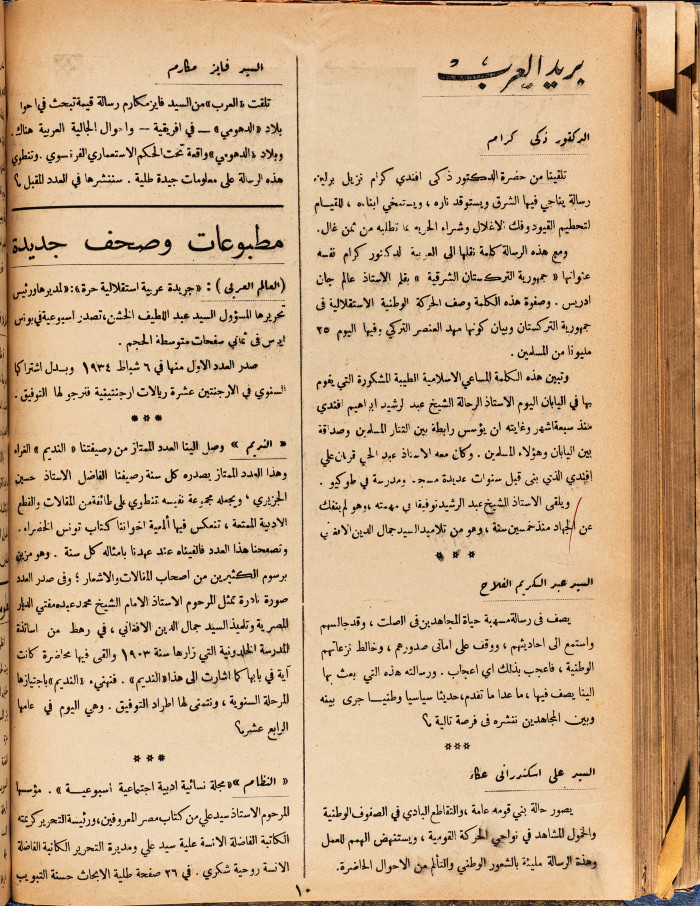 بريد العرب
الدكتور ذكي كرام
تلقينا من حضرة الدكتور ذكي افندي كرام نزيل برلين
رسالة يناجي فيها الشرق ويستوقد ناره ، ويستحفي ابناءه ، للقيام
لتحطيم القيود وفك الاغلال وشراء الحرية بما تطلبه من ثمن غال .
ومع هذه الرسالة كلمة نقلها الى العربية الدكتور كرام نفسه
عنوانها « جمهورية التركستان الشرقية » بقلم الاستاذ عالم جان
ادريس . وصفوة هذه الكلمة وصف الحركة الوطنية الاستقلالية في
جمهورية التركستان وبيان كونها مهد العنصر التركي وفيها اليوم ٢٥
مليونا من المسلمين .
وتبين هذه الكلمة المساعي الاسلامية الطيبة المشكورة التي يقوم
بها في اليابان اليوم الاستاذ الرحالة الشيخ عبد الرشيد ابراهيم افندي
منذ سبعة اشهر وغايته ان يؤسس رابطة بين التتار المسلمين وصداقة
بين اليابان وهؤلاء المسلمين . وكان معه الاستاذ عبد الحي قربان علي
افندي الذي بنى قبل سنوات عديدة مسجدا ومدرسة في طوكيو .
ويلقى الاستاذ الشيخ عبد الرشيد توفيقا في مهمته ، وهو لم ينفك
عن الجهاد منذ خمسين سنة ، وهو من تلاميذ السيد جمال الدين الافغاني
* * *
السيد عبد الكريم الفلاح
يصف في رسالة مسهبة حياة المجاهدين في الصلت ، وقد جالسهم
واستمع الى احاديثهم ، ووقف على اماني صدورهم ، وخالط نزعاتهم
الوطنية ، فاعجب بذلك اي اعجاب . ورسالته هذه التي بعث بها
الينا يصف فيها ، ما عدا ما تقدم ، حديثا سياسيا وطنيا جرى بينه
وبين المجاهدين ننشره في فرصة تالية ؟
***
السيد علي اسكندراني عكاء
يصور حالة بني قومه عامة ، والتقاطع البادي في الصفوف الوطنية
والخمول المشاهد في نواحي الحركة القومية ، ويستنهض الهمم للعمل
وهذه الرسالة مليئة بالشعور الوطني والتألم من الاحوال الحاضرة .
السيد فايز مكارم
تلقت «العرب» من السيد فايز مكارم رسالة قيمة تبحث في احوا
بلاد «الدهومي» — في افريقية — واحوال الجالية العربية هناك .
وبلاد «الدهومي» واقعة تحت الحكم الاستعماري الفرنسوي . وتنطوي
هذه الرسالة على معلومات جيدة طلية . سننشرها في العدد المقبل ؟
مطبوعات وصحف جديدة
(العالم العربي) : «جريدة عربية استقلالية حرة» : لمديرها ورئيس
تحريرها المسؤول السيد عبد اللطيف الخشن ، تصدر اسبوعية في بونس
ايرس في ثماني صفحات متوسطة الحجم .
صدر العدد الاول منها في ٦ شباط ١٩٣٤ وبدل اشتراكها
السنوي في الارجنتين عشرة ريالات ارجنتينية فنرجو لها التوفيق .
* * *
« النديم » وصل الينا العدد الممتاز من رصيفتنا « النديم » الغراء
وهذا العدد الممتاز يصدره كل سنة رصيفنا الفاضل الاستاذ حسين
الجزيري ، ويجعله مجموعة نفيسة تنطوي على طائفة من المقالات والقطع
الادبية الممتعة ، تنعكس فيها ألمعية اخواننا كتاب تونس الخضراء .
وتصفحنا هذا العدد فالفيناه عند عهدنا بامثاله كل سنة . وهو مزين
برسوم الكثيرين من اصحاب المقالات والاشعار ؛ وفي صدر العدد
صورة نادرة تمثل المرحوم الاستاذ الامام الشيخ محمد عبده مفتي الديار
المصرية وتلميذ السيد جمال الدين الافغاني ، في رهط من اساتذة
المدرسة الخلدونية التي زارها سنة ١٩٠٣ والقى فيها محاضرة كانت
آية في بابها كما اشارت الى هذا «النديم» . فنهنيء «النديم» باجتيازها
المرحلة السنوية ، ونتمنى لها اطراد التوفيق . وهي اليوم في عامها
الرابع عشر ؟
* * *
« النظام » «مجلة نسائية ادبية اجتماعية أسبوعية » . مؤسسها
المرحوم الاستاذ سيد علي من كتاب مصر المعروفين ، ورئيسة التحرير كريمته
الكاتبة الفاضلة الانسة علية سيد علي ومديرة التحرير الكاتبة الفاضلة
الانسة روحية شكري . في ٢٦ صفحة طلية الابحاث حسنة التبويب
١٠